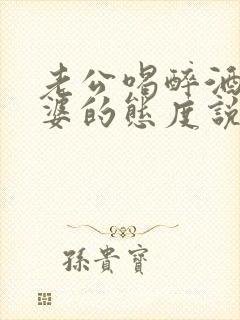 老公喝醉酒
婆的態度說
孫貴寶